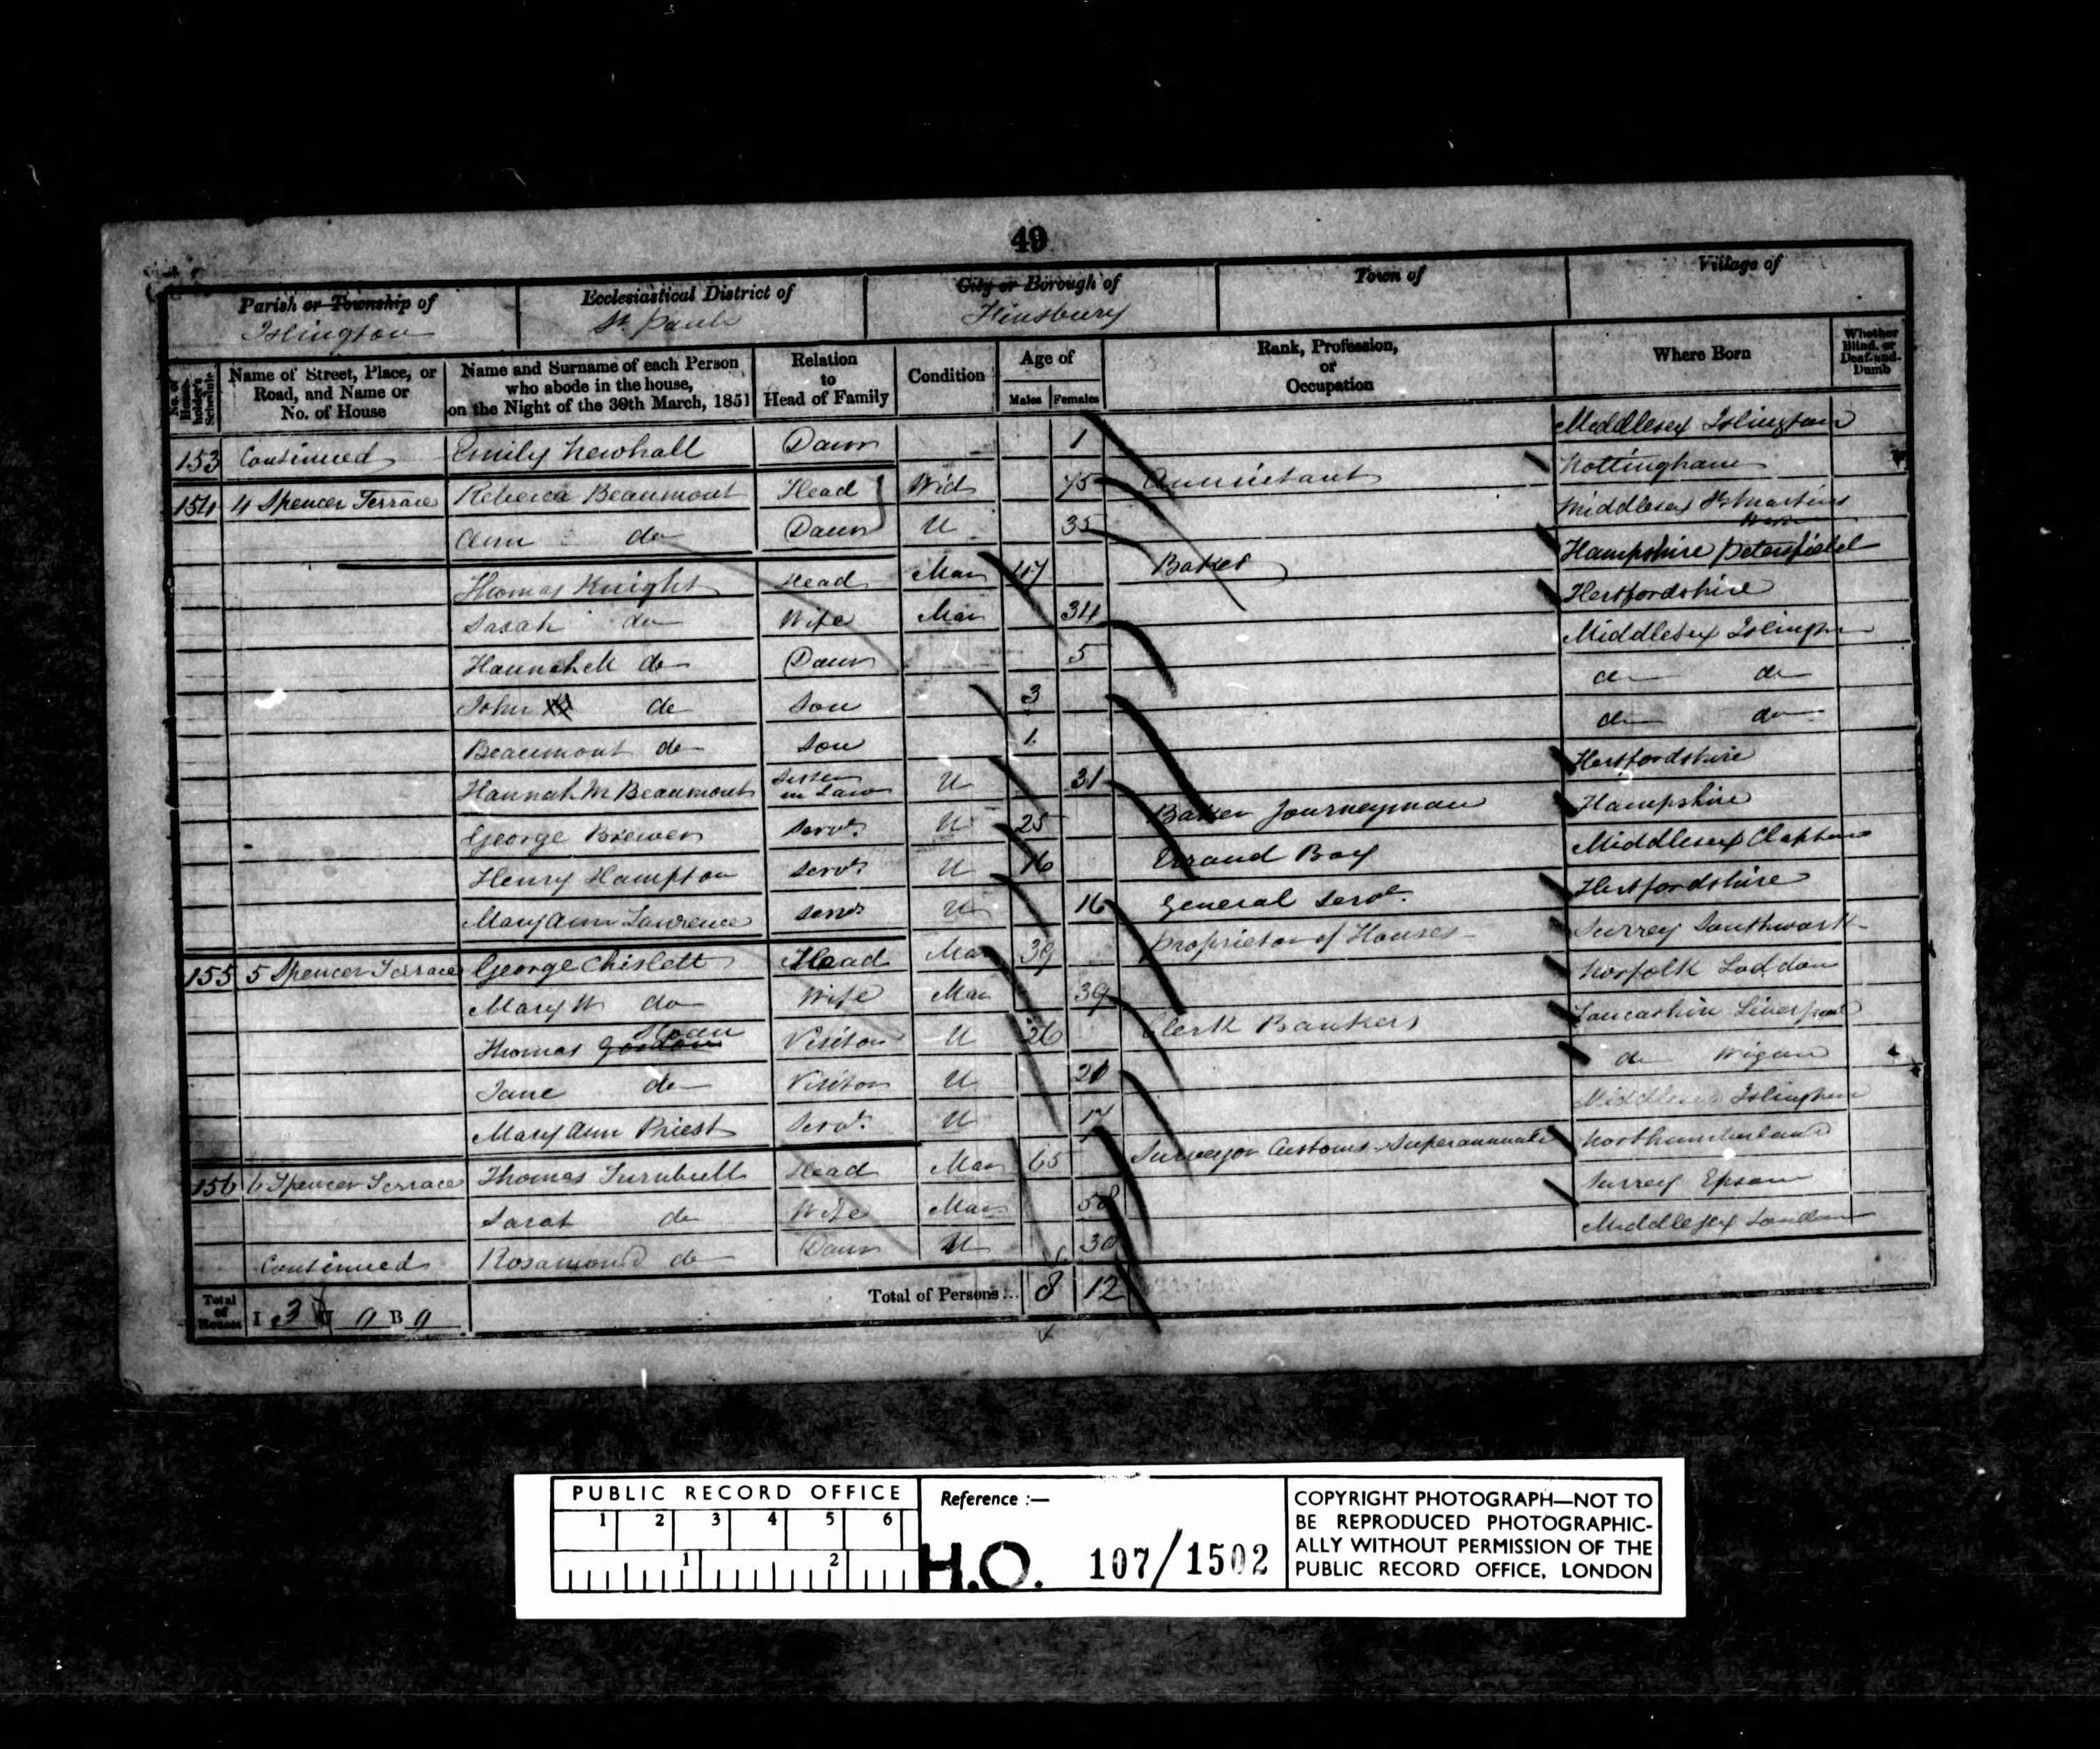 49
Parish or Township of
Ecclesiastical District of
City or Borough of
Town of
Village of
Islington
St Pauls
Finsbury
No. of House-holder's Schedule
Name of Street, Place, or Road, and Name or No. of House
Name and Surname of each Person who abode in the house, on the Night of the 30th March, 1851
Relation to Head of Family
Condition
Age of
Males
Females
Rank, Profession, or Occupation
Where Born
Whether Blind, or Deaf-and-Dumb
153 Continued Emily Newhall Daur 1 Middlesex Islington
154 4 Spencer Terrace Rebecca Beaumont Head Wid 75 Annuitant Nottingham
Ann do Daur U 35 Middlesex St Martins
Thomas Knight Head Mar 47 Baker Hampshire Petersfield
Sarah do Wife Mar 34 Hertfordshire
Hannah M do Daur 5 Middlesex Islington
John do Son 3 do do
Beaumont do Son 1 do do
Hannah M Beaumont Sister in Law U 31 Hertfordshire
George Brewer Servt U 25 Baker Journeyman Hampshire
Henry Hampton Servt U 16 Errand Boy Middlesex Clapham
Mary Ann Lawrence Servt U 16 General Servt Hertfordshire
155 5 Spencer Terrace George Chislett Head Mar 39 Proprietor of Houses Surrey Southwark
Mary W do Wife Mar 39 Norfolk Loddon
Thomas Sloan Visitor U 26 Clerk Bankers Lancashire Liverpool
Jane do Visitor U 21 do Wigan
Mary Ann Priest Servt U 17 Middlesex Islington
156 6 Spencer Terrace Thomas Turnbull Head Mar 65 Surveyor Customs Superannuated Northumberland
Sarah do Wife Mar 58 Surrey Epsom
Continued Rosamond do Daur U 30 Middlesex London
Total of Houses I 3 U 0 B 0
Total of Persons... 8 12
PUBLIC RECORD OFFICE
1 2 3 4 5 6
1 2
Reference :—
H.O. 107/1502
COPYRIGHT PHOTOGRAPH—NOT TO
BE REPRODUCED PHOTOGRAPHIC-
ALLY WITHOUT PERMISSION OF THE
PUBLIC RECORD OFFICE, LONDON